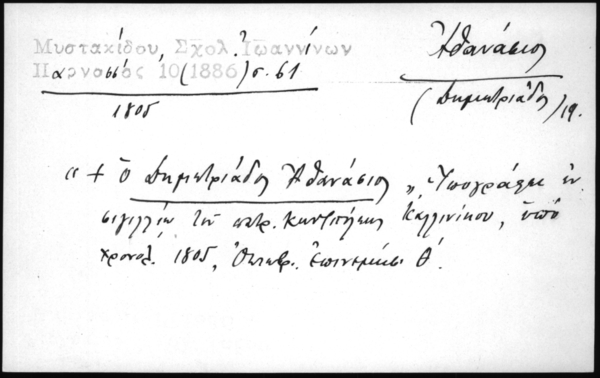 Μυστακίδου, Σχολ. Ἰωαννίνων
Παρνασσός 10 (1886) σ. 61
1805
Ἀθανάσιος
(Δημητριάδος) 19.
"+ ὁ Δημητριάδος Ἀθανάσιος„ Ὑπογράφει ἐν
σιγιλλίῳ τοῦ πατρ. Κων)πόλεως Καλλινίκου, ὑπὸ
χρονολ. 1805, Ὀκτωβρ. Ἐπινεμήσ. Θ΄.